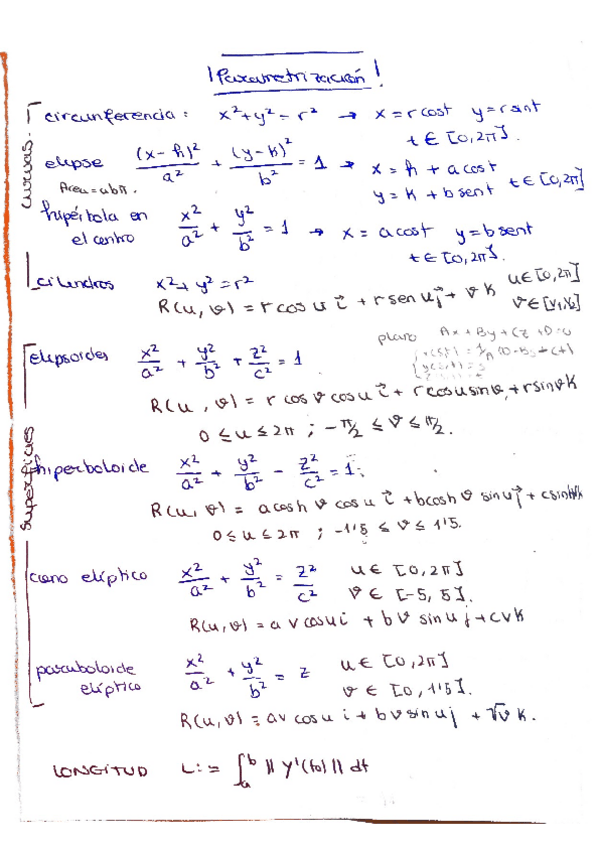 ¡Parametrización!
curvas.
circunferencia: x²+y²=r² → x=rcost y=rsint
t ∈ [0,2π].
elipse (x-h)²/a² + (y-k)²/b² = 1 → x = h + a cost
Area=abπ. y = K + b sent t ∈ [0,2π]
hipérbola en x²/a² + y²/b² = 1 → x = a cost y = b sent
el centro t ∈ [0,2π].
cilindros x²+y²=r² u ∈ [0,2π]
R(u,v) = r cos u i + r sen u j + v K v ∈ [v₁,v₂]
plano Ax + By + Cz + D = 0
superficies
elipsoides x²/a² + y²/b² + z²/c² = 1
R(u,v) = r cos v cos u i + r cosu sinv + r sinv K
0 ≤ u ≤ 2π ; -π/2 ≤ v ≤ π/2.
hiperboloide x²/a² + y²/b² - z²/c² = 1.
R(u,v) = a cosh v cos u i + b cosh v sin u j + c sinh v K
0 ≤ u ≤ 2π ; -1'5 ≤ v ≤ 1'5.
cono elíptico x²/a² + y²/b² = z²/c² u ∈ [0,2π]
v ∈ [-5, 5].
R(u,v) = a v cosu i + b v sin u j + c v K
paraboloide x²/a² + y²/b² = z u ∈ [0,2π]
elíptico v ∈ [0,1'5].
R(u,v) = av cos u i + b v sin u j + √v K.
LONGITUD L := ∫ₐᵇ || γ'(t) || dt